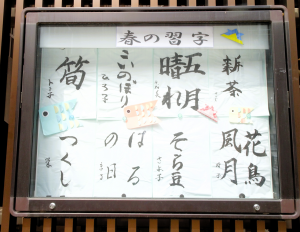 春の習字
新茶
花鳥
風月
五月
晴れ
そら豆
こいのぼり
はる
の日
筍
つくし